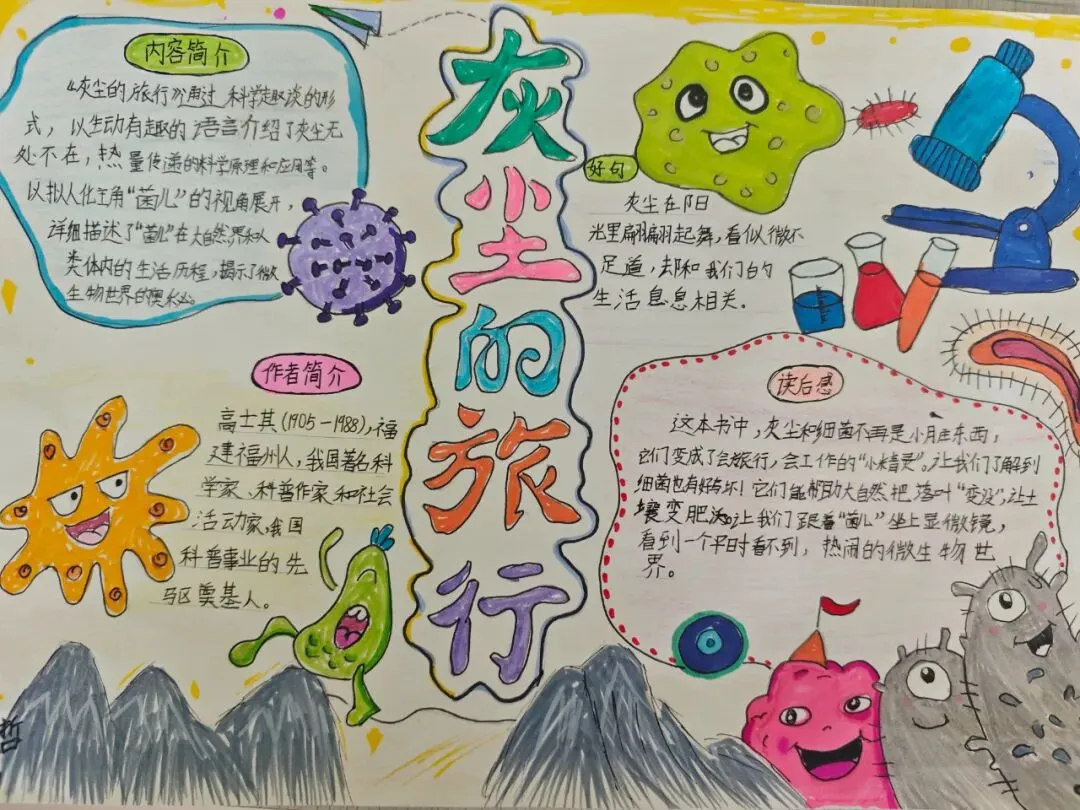 灰尘的旅行
内容简介
《灰尘的旅行》通过科学趣谈的形
式，以生动有趣的语言介绍了灰尘无
处不在，热量传递的科学原理和应用等。
以拟人化主角“菌儿”的视角展开，
详细描述了“菌儿”在大自然界和人
类体内的生活历程，揭示了微
生物世界的奥秘。
作者简介
高士其（1905－1988），福
建福州人，我国著名科
学家、科普作家和社会
活动家，我国
科普事业的先
驱奠基人。
好句
灰尘在阳
光里翩翩起舞，看似微不
足道，却和我们的
生活息息相关.
读后感
这本书中，灰尘和细菌不再是小脏东西，
它们变成了会旅行，会工作的“小精灵”。让我们了解到
细菌也有好有坏！它们能帮助大自然把落叶“变没”，让土
壤变肥沃。让我们跟着“菌儿”坐上显微镜，
看到一个平时看不到，热闹的微生物世
界。
哲